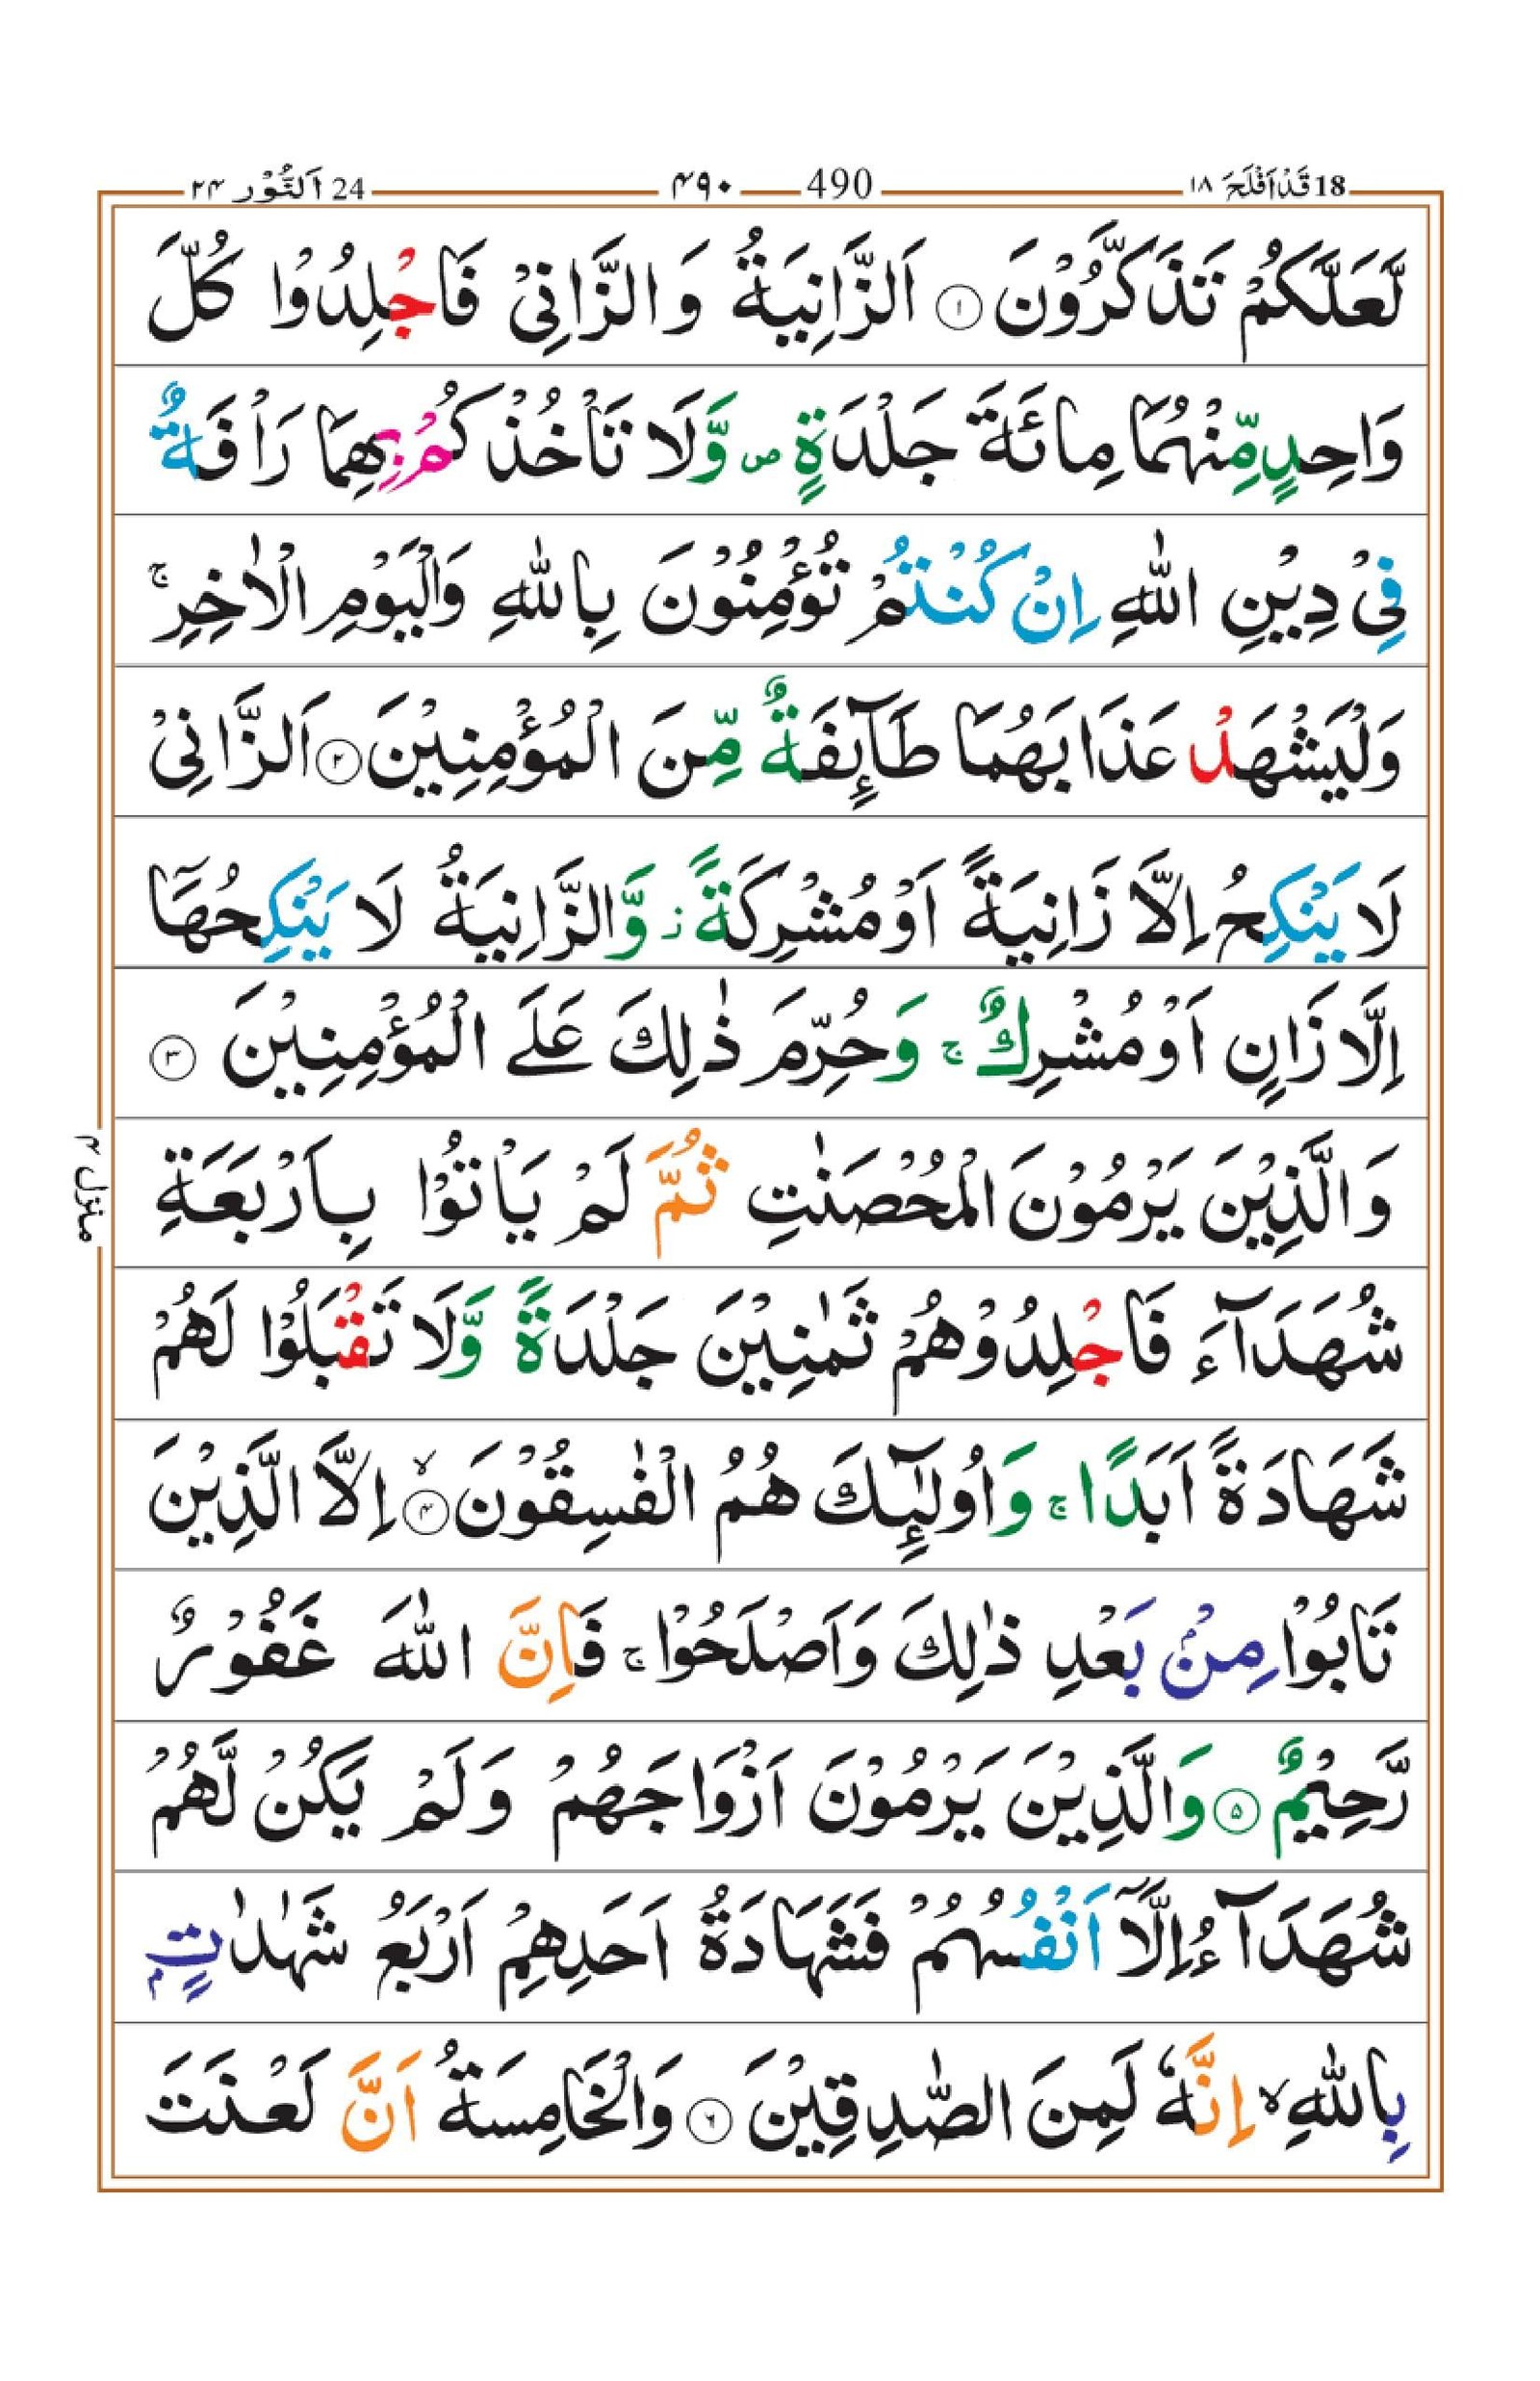 18 قَدْ اَفْلَحَ ١٨ 490 ٤٩٠ 24 اَلنُّوْر ٢٤
لَّعَلَّكُمْ تَذَكَّرُوْنَ ۝١ اَلزَّانِيَةُ وَالزَّانِيْ فَاجْلِدُوْا كُلَّ
وَاحِدٍ مِّنْهُمَا مِائَةَ جَلْدَةٍ ص وَّلَا تَاْخُذْكُمْ بِهِمَا رَاْفَةٌ
فِيْ دِيْنِ اللّٰهِ اِنْ كُنْتُمْ تُؤْمِنُوْنَ بِاللّٰهِ وَالْيَوْمِ الْاٰخِرِ ۚ
وَلْيَشْهَدْ عَذَابَهُمَا طَآىِٕفَةٌ مِّنَ الْمُؤْمِنِيْنَ ۝٢ اَلزَّانِيْ
لَا يَنْكِحُ اِلَّا زَانِيَةً اَوْ مُشْرِكَةً ز وَّالزَّانِيَةُ لَا يَنْكِحُهَاۤ
اِلَّا زَانٍ اَوْ مُشْرِكٌ ۚ وَحُرِّمَ ذٰلِكَ عَلَى الْمُؤْمِنِيْنَ ۝٣
وَالَّذِيْنَ يَرْمُوْنَ الْمُحْصَنٰتِ ثُمَّ لَمْ يَاْتُوْا بِاَرْبَعَةِ
شُهَدَآءَ فَاجْلِدُوْهُمْ ثَمٰنِيْنَ جَلْدَةً وَّلَا تَقْبَلُوْا لَهُمْ
شَهَادَةً اَبَدًا ۚ وَاُولٰٓىِٕكَ هُمُ الْفٰسِقُوْنَ ۙ۝٤ اِلَّا الَّذِيْنَ
تَابُوْا مِنْۢ بَعْدِ ذٰلِكَ وَاَصْلَحُوْا ۚ فَاِنَّ اللّٰهَ غَفُوْرٌ
رَّحِيْمٌ ۝٥ وَالَّذِيْنَ يَرْمُوْنَ اَزْوَاجَهُمْ وَلَمْ يَكُنْ لَّهُمْ
شُهَدَآءُ اِلَّاۤ اَنْفُسُهُمْ فَشَهَادَةُ اَحَدِهِمْ اَرْبَعُ شَهٰدٰتٍۭ
بِاللّٰهِ ۙ اِنَّهٗ لَمِنَ الصّٰدِقِيْنَ ۝٦ وَالْخَامِسَةُ اَنَّ لَعْنَتَ
منزل ٤